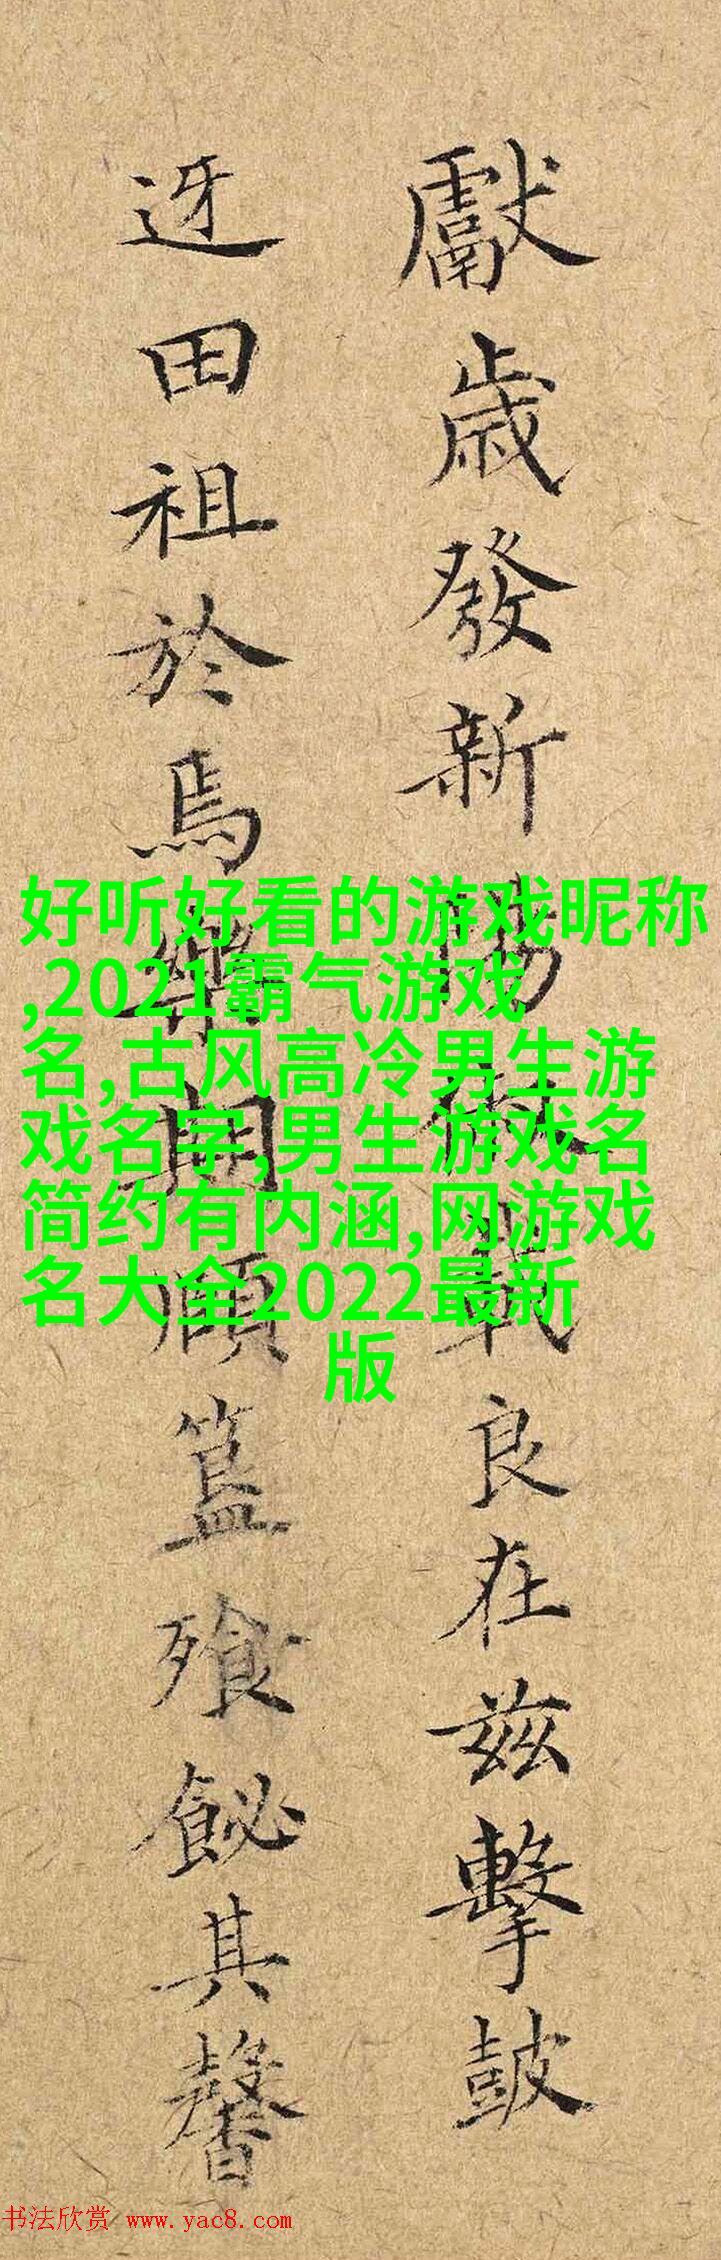 獻歲發新陽載良在茲擊鼓
迓田祖於焉樂期順簋飱飶其馨
好听好看的游戏昵称
,2021霸气游戏
名,古风高冷男生游
戏名字,男生游戏名
简约有内涵,网游戏
名大全2022最新
版
书法欣赏 www.yac8.com